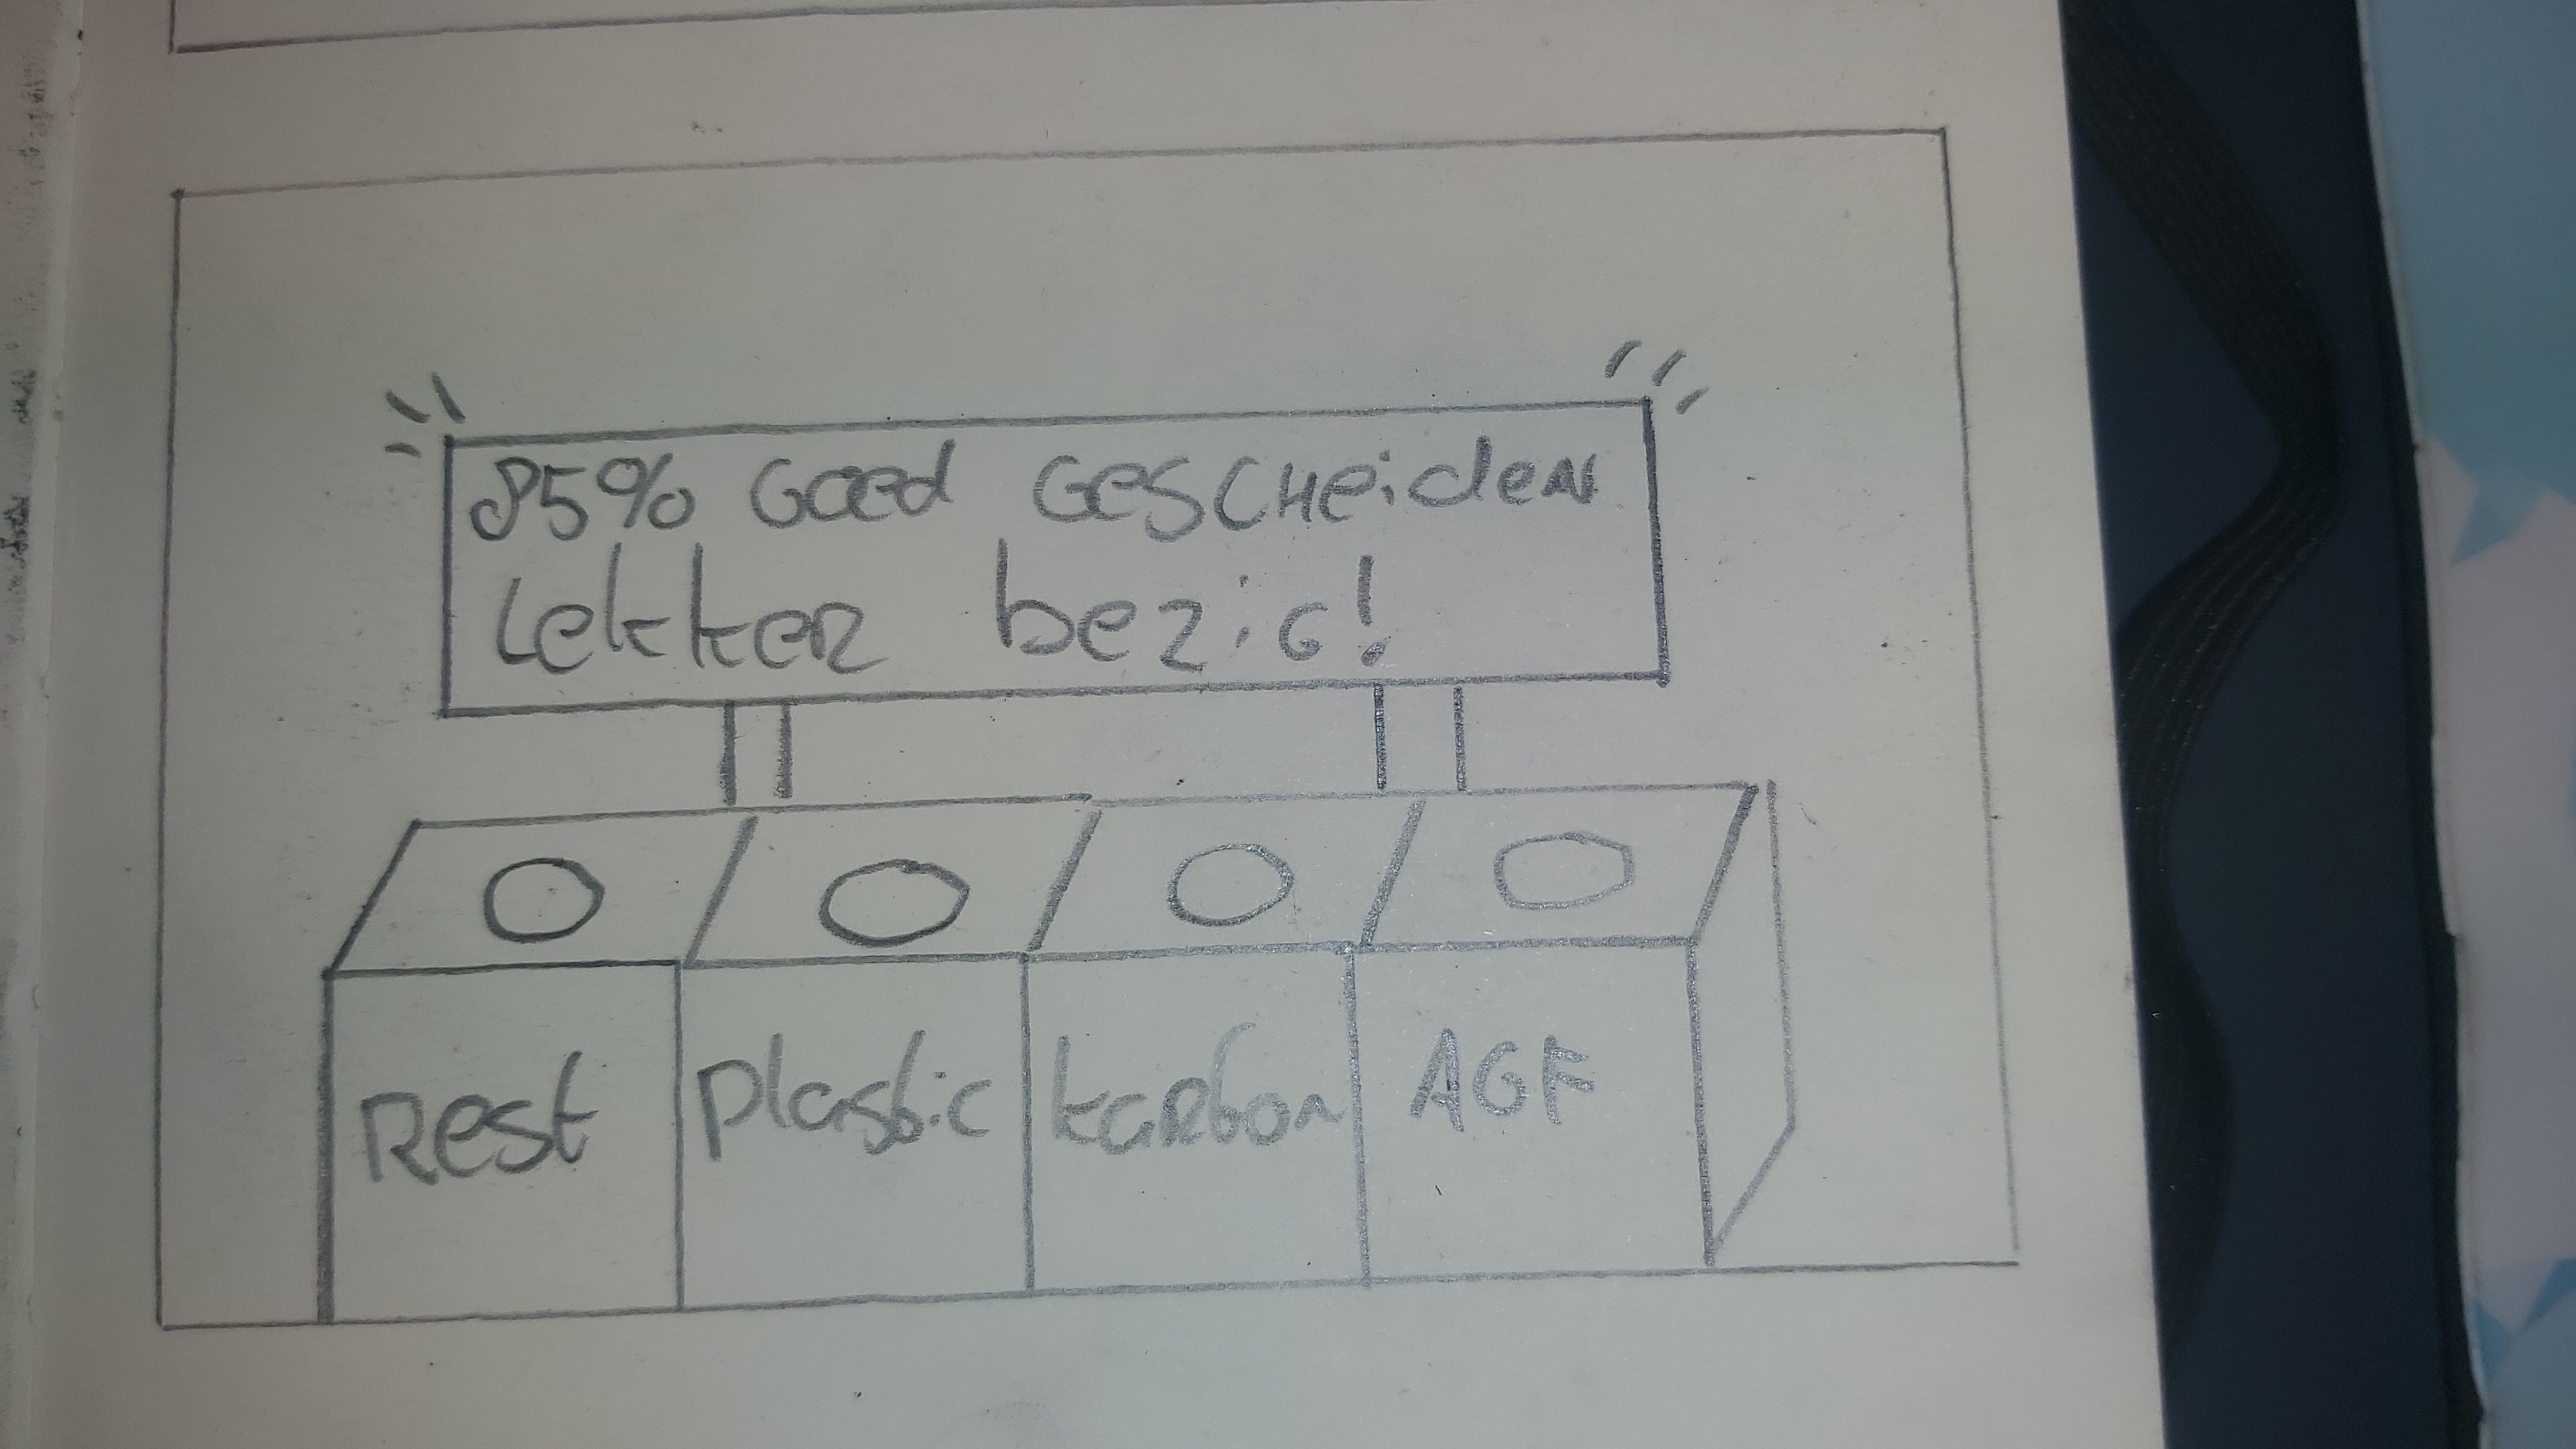 85% Goed Gescheiden
Lekker bezig!
Rest
Plastic
karton
AGF